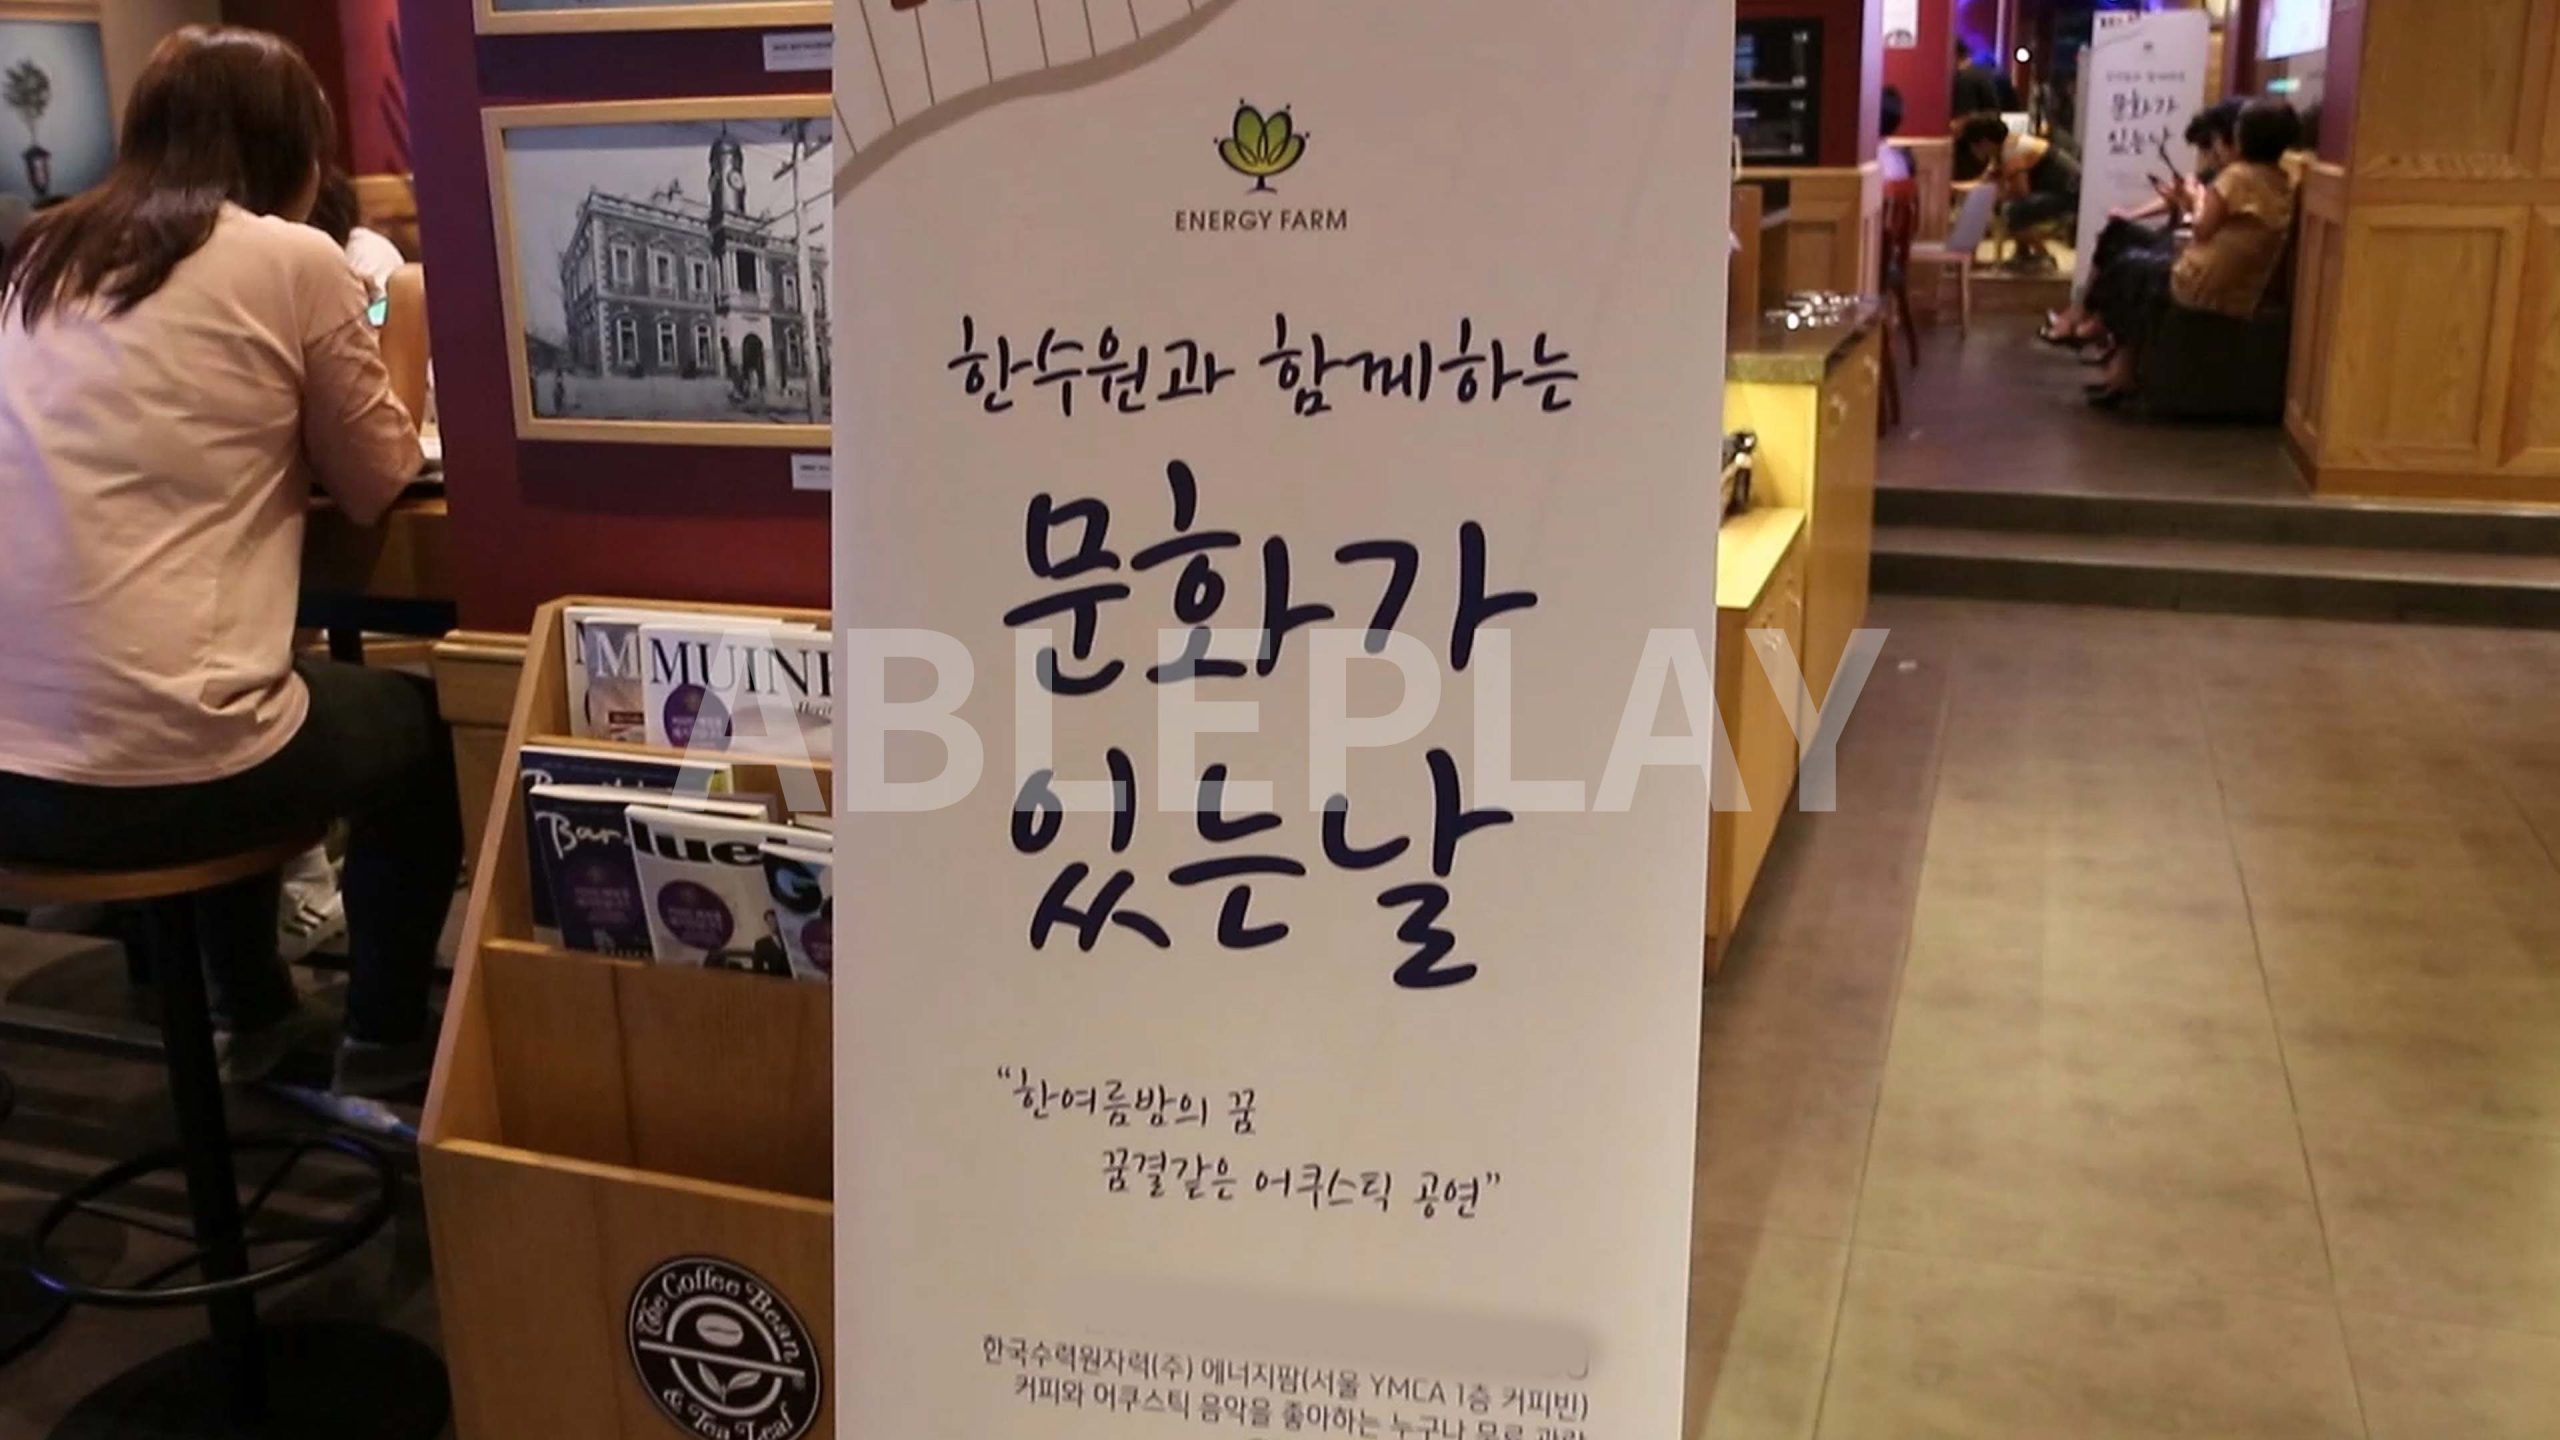 ENERGY FARM
한수원과 함께하는
문화가
있는날
"한여름밤의 꿈
꿈결같은 어쿠스틱 공연"
한국수력원자력(주) 에너지팜(서울 YMCA 1층 커피빈)
커피와 어쿠스틱 음악을 좋아하는 누구나 무료 관람
ABLEPLAY
MUINE
The Coffee Bean
& Tea Leaf
문화가
있는날